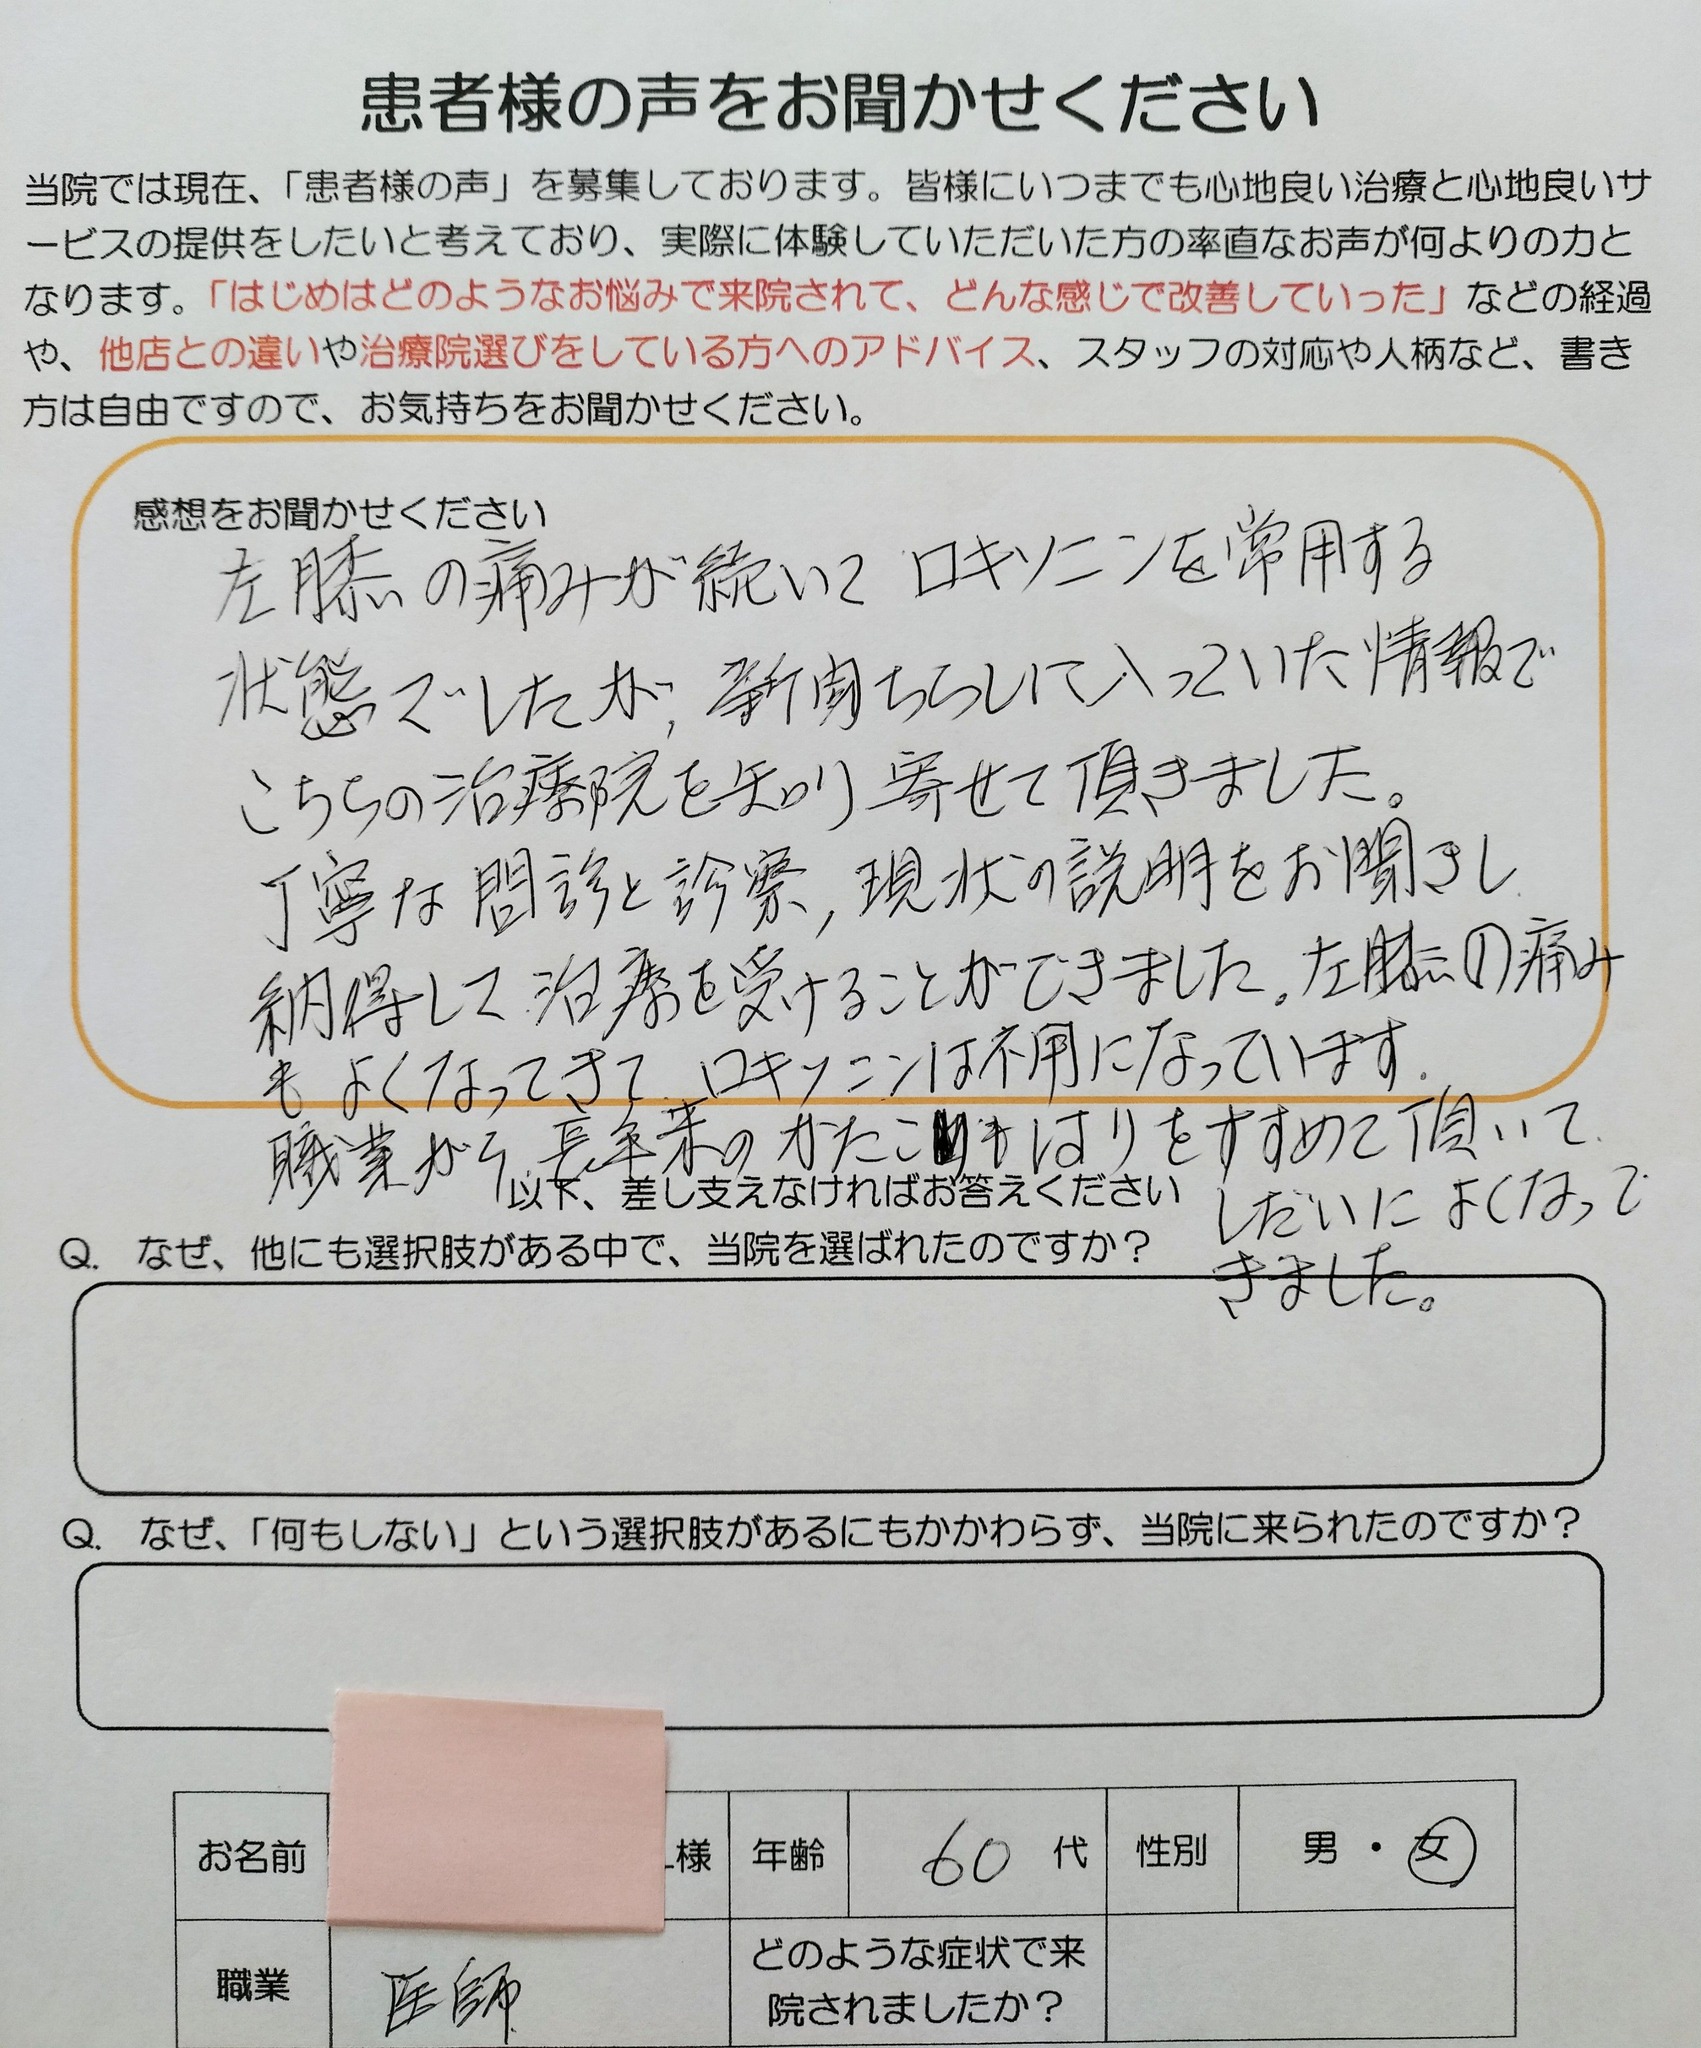 患者様の声をお聞かせください
当院では現在、「患者様の声」を募集しております。皆様にいつまでも心地良い治療と心地良いサ
ービスの提供をしたいと考えており、実際に体験していただいた方の率直なお声が何よりの力と
なります。「はじめはどのようなお悩みで来院されて、どんな感じで改善していった」などの経過
や、他店との違いや治療院選びをしている方へのアドバイス、スタッフの対応や人柄など、書き
方は自由ですので、お気持ちをお聞かせください。
感想をお聞かせください
左膝の痛みが続いて ロキソニンを常用する
状態でしたが、新聞ちらしに入っていた情報で
こちらの治療院を知り 寄せて頂きました。
丁寧な問診と診察, 現状の説明をお聞きし
納得して治療を受けることができました。左膝の痛み
も よくなってきて ロキソニンは不用になっています.
職業がら 長年来のかたこりも はりをすすめて頂いて
しだいに よくなって
きました。
以下、差し支えなければお答えください
Q. なぜ、他にも選択肢がある中で、当院を選ばれたのですか?
Q. なぜ、「何もしない」という選択肢があるにもかかわらず、当院に来られたのですか?
お名前 様 年齢 60 代 性別 男・女
職業 医師 どのような症状で来
院されましたか?